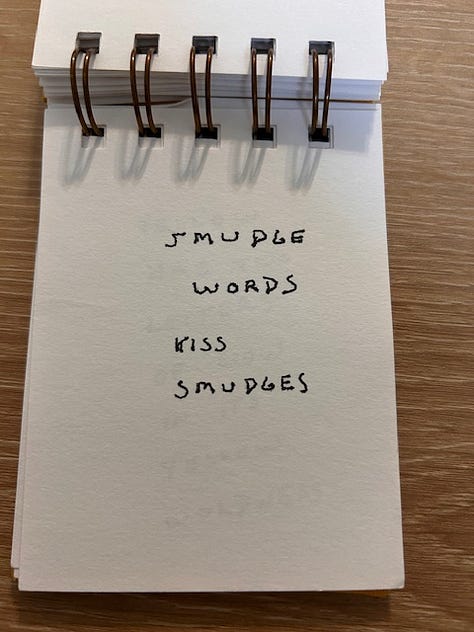 SMUDGE
WORDS
KISS
SMUDGES